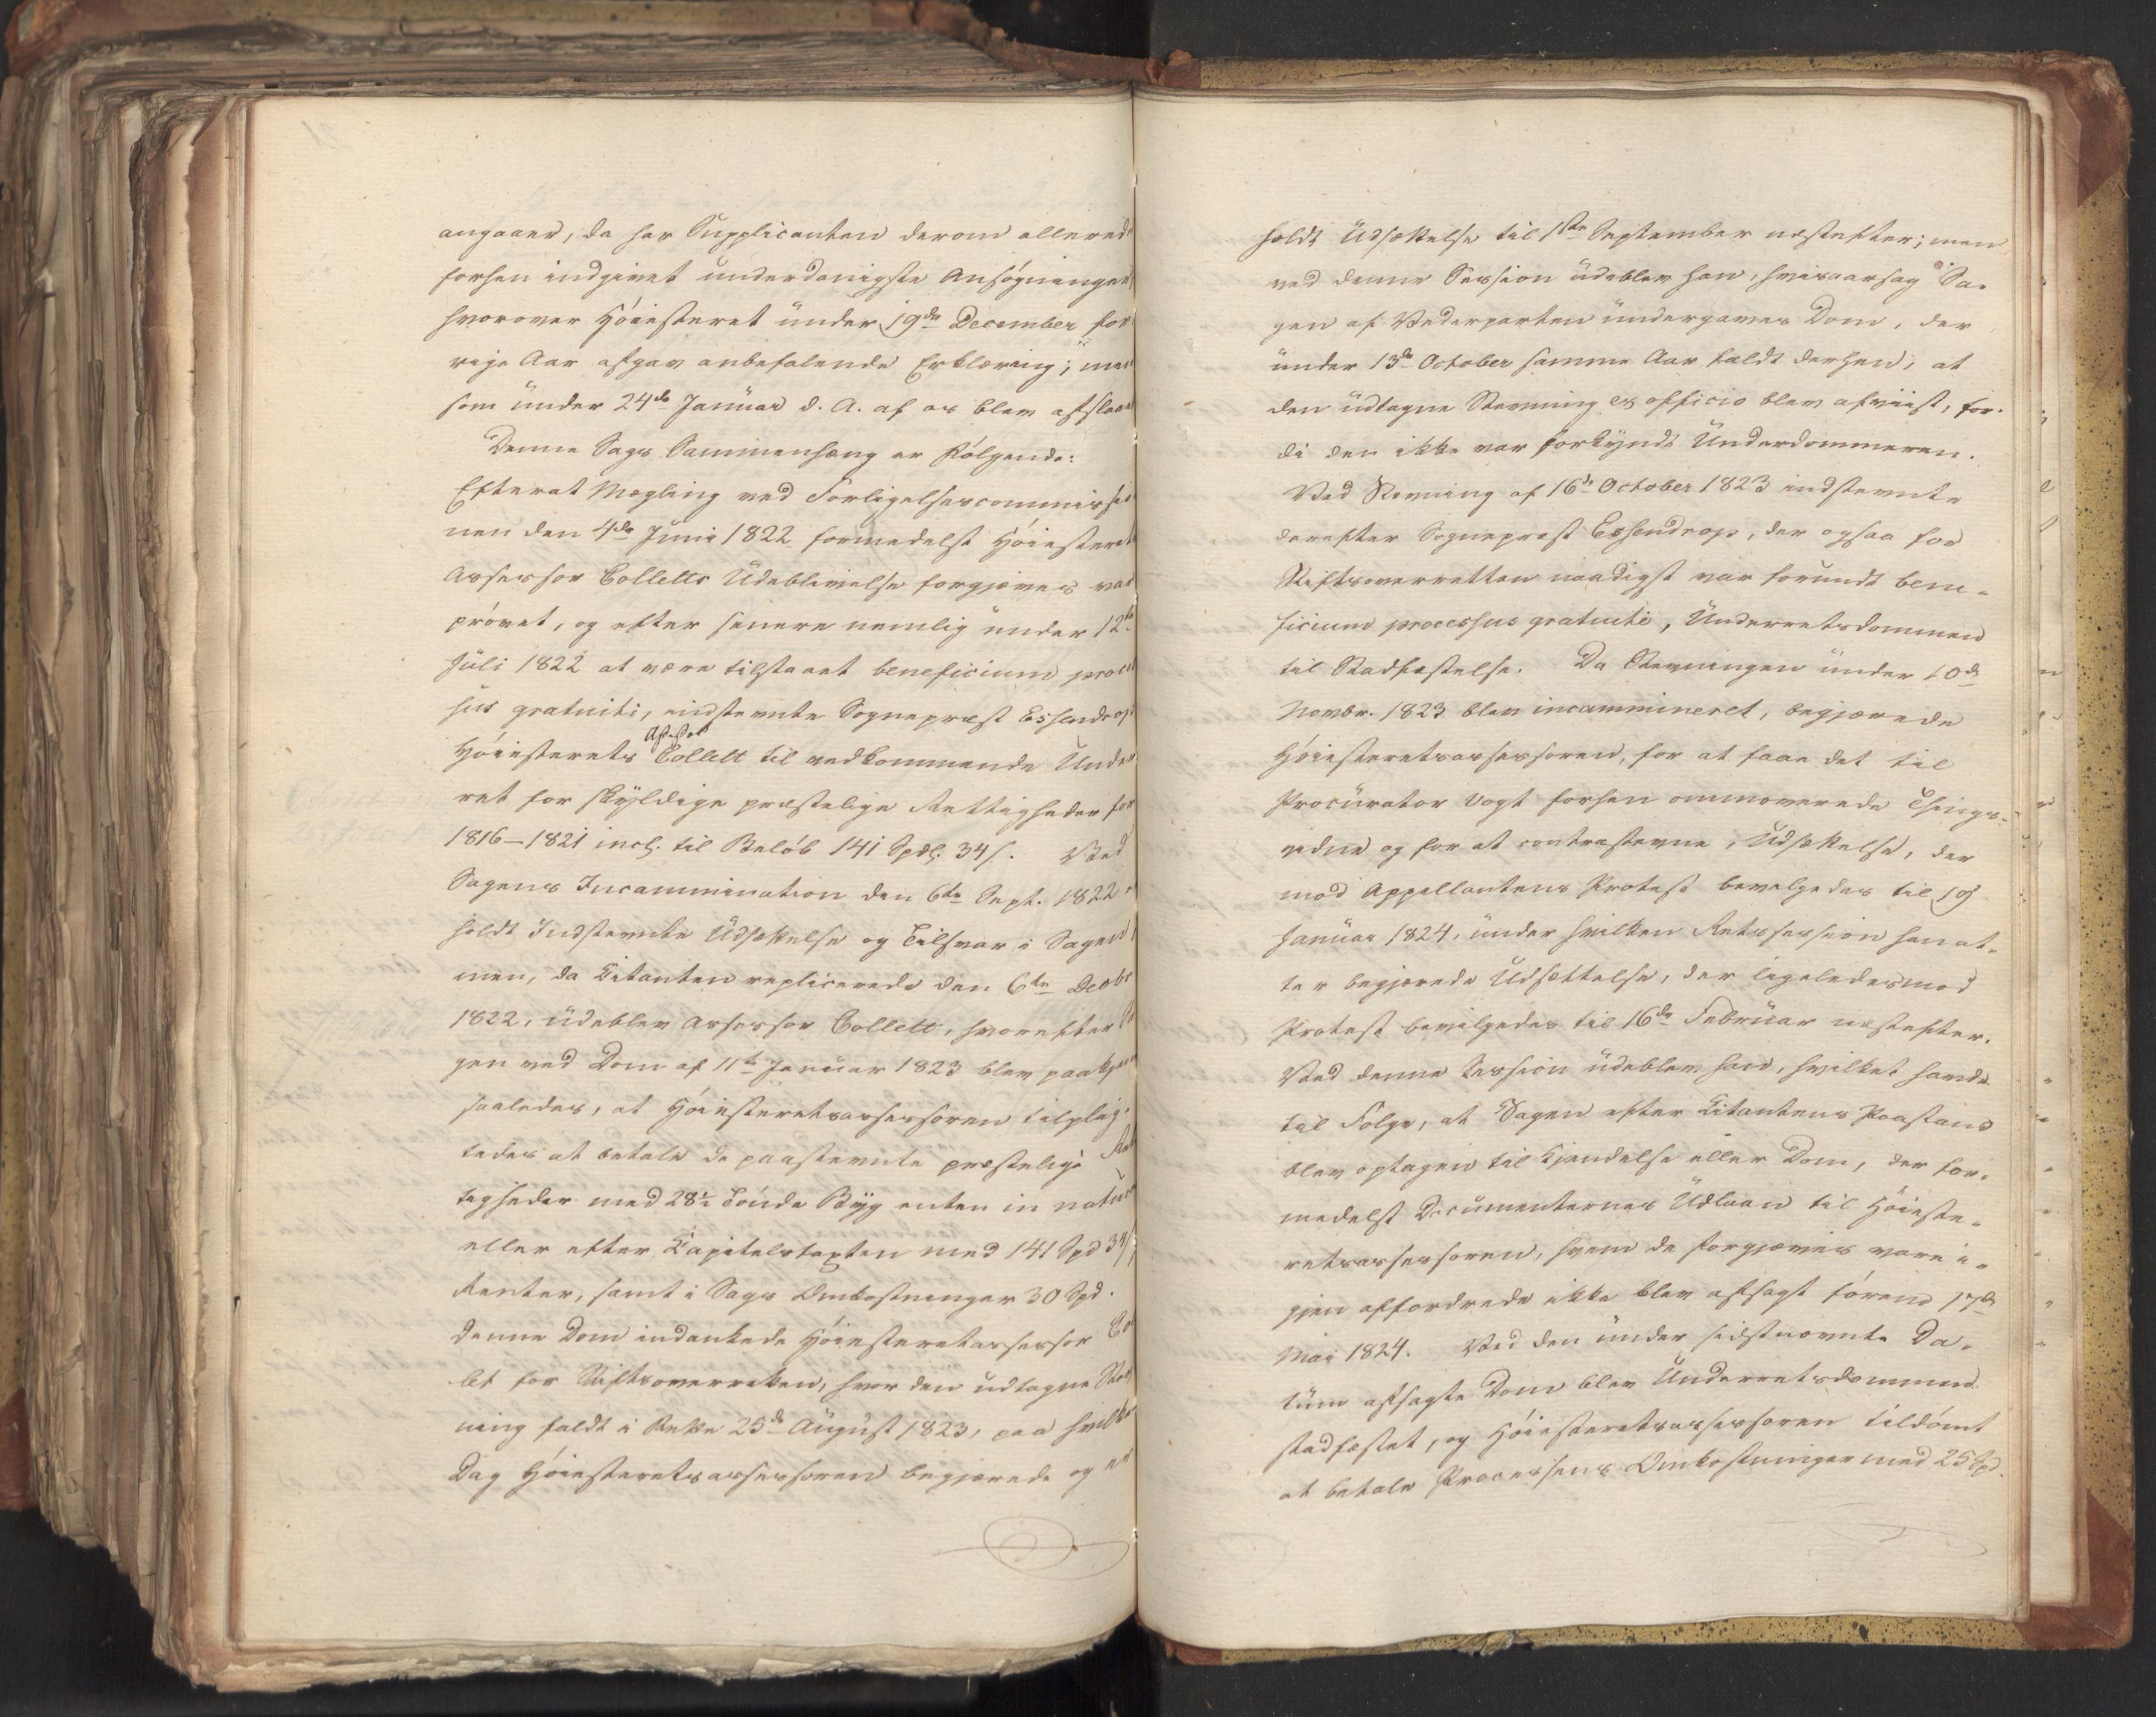 angaaer, da har Supplicanten derom allerede
forhen indgivet underdanigste Ansøgninger
hvorover Høiesteret under 19de December for
rige Aar afgav anbefalende Erklæring; men
som under 24de Januar d. A. af os blev afslaaet
Denne Sags Sammenhæng er følgende:
Efterat Mægling ved Forligelsescommissio
nen den 4de Juni 1822 formedelst Høiesterets
Assessor Colletts Udeblivelse forgjæves var
prøvet, og efter senere nemlig under 12te
Juli 1822 at være tilstaaet beneficium proces
sus gratuiti, indstevnte Sognepræst Essendrop
Høiesterets Assessor Collett til vedkommende Under
ret for skyldige præstelige Rettigheder for
1816–1821 incl. til Beløb 141 Spdl. 34 s. Ved
Sagens Incammination den 6te Sept. 1822
holdt Indstevnte Udsættelse og Tilsvar i Sagen
men, da Citanten replicerede den 6te Decbr
1822, udeblev Assessor Collett, hvorefter Sa
gen ved Dom af 11te Januar 1823 blev paakjendt
saaledes, at Høiesteretsassessoren tilplig-
tedes at betale de paastevnte præstelige Ret
tigheder med 28½ Tønde Byg enten in natura
eller efter Capitelstaxten med 141 Spd 34 s
Renter, samt i Sags Omkostninger 30 Spd.
Denne Dom indankede Høiesteretsassessor Col
let for Stiftsoverretten, hvor den udtagne Stev
ning faldt i Rette 25de August 1823, paa hvilken
Dag Høiesteretsassessoren begjærede og er
holdt Udsættelse til 1ste September næstefter; men
ved denne Session udeblev han, hvisaarsag Sa-
gen af Vederparten undergaves Dom, der
under 13de October samme Aar faldt derhen, at
den udtagne Stevning ex officio blev afviist, for-
di den ikke var forkyndt Underdommeren.
Ved Stevning af 16de October 1823 indstevnte
derefter Sognepræst Essendrop, der ogsaa for
Stiftsoverretten naadigst var forundt bene-
ficium processus gratuiti, Underretsdommen
til Stadfæstelse. Da Stevningen under 10de
Novbr. 1823 blev incammineret, begjærede
Høiesteretsassessoren, for at faae det til
Procurator Vogt forhen ommoverede Things-
vidne og for at contrastevne, Udsættelse, der
mod Appellantens Protest bevilgedes til 19
Januar 1824, under hvilken Retssession han at-
ter begjærede Udsættelse, der ligeledes mod
Protest bevilgedes til 16de Februar næstefter.
Ved denne Session udeblev han, hvilket havde
til Følge, at Sagen efter Citantens Paastand
blev optagen til Kjendelse eller Dom, der for-
medelst Documenternes Udlaan til Høieste-
retsassessoren, hvem de forgjæves vare i-
gjen affordrede ikke blev afsagt førend 17de
Mai 1824. Ved den under sidstnævnte Da-
tum afsagte Dom blev Underretsdommen
stadfæstet, og Høiesteretsassessoren tildømt
at betale Processens Omkostninger med 25 Spd.